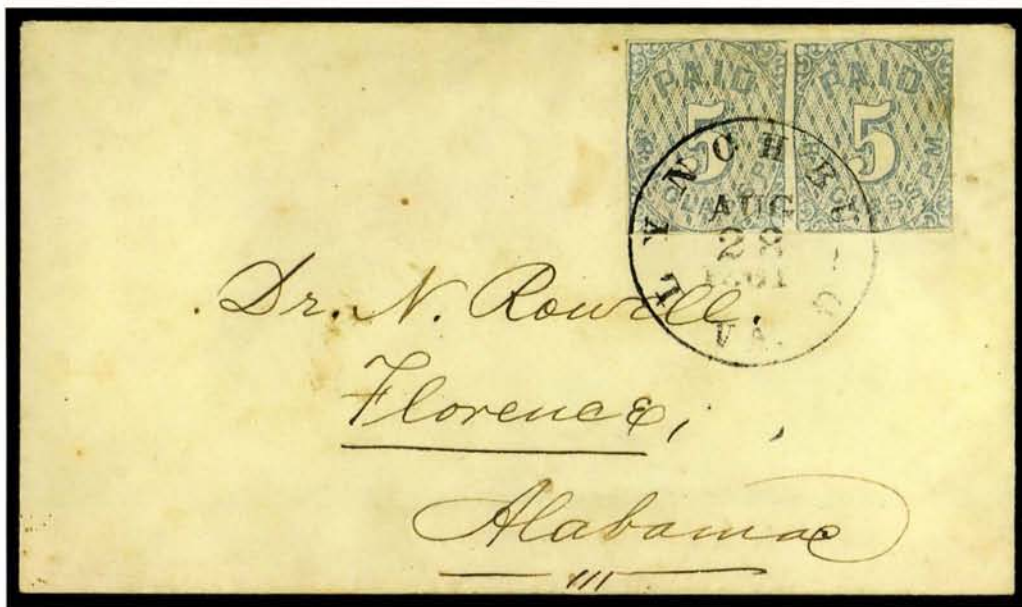 PAID PAID
5 5
LYNCHBURG
AUG
28
1861
VA.
Dr. N. Rowell.
Florence,
Alabama